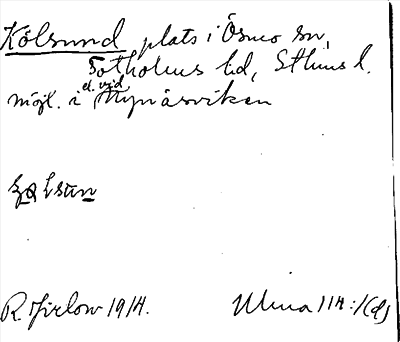 Kölsund plats i Ösmo sn,
Sotholms hd, Sthms l.
möjl. i el. vid Mynåsviken
R. Hjirlow 1914.
Ulma 114:1(d)